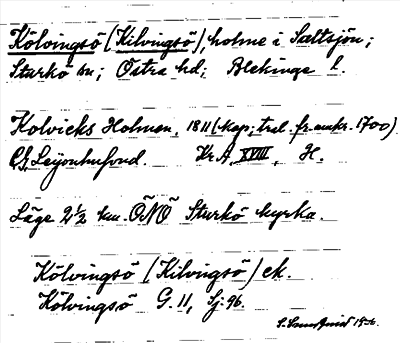 Kölvingsö (Kilvingsö), holme i Saltsjön;
Sturkö sn; Östra hd; Blekinge l.
Kolvicks Holmen, 1811 (kop; tral. fr. omkr. 1700)
C.G. Leijonhufvud. Kr.A, XVIII, H.
Läge 2½ km. ÖNÖ Sturkö kyrka.
Kölvingsö (Kilvingsö) ek.
Kölvingsö G. 11, Sj. 96.